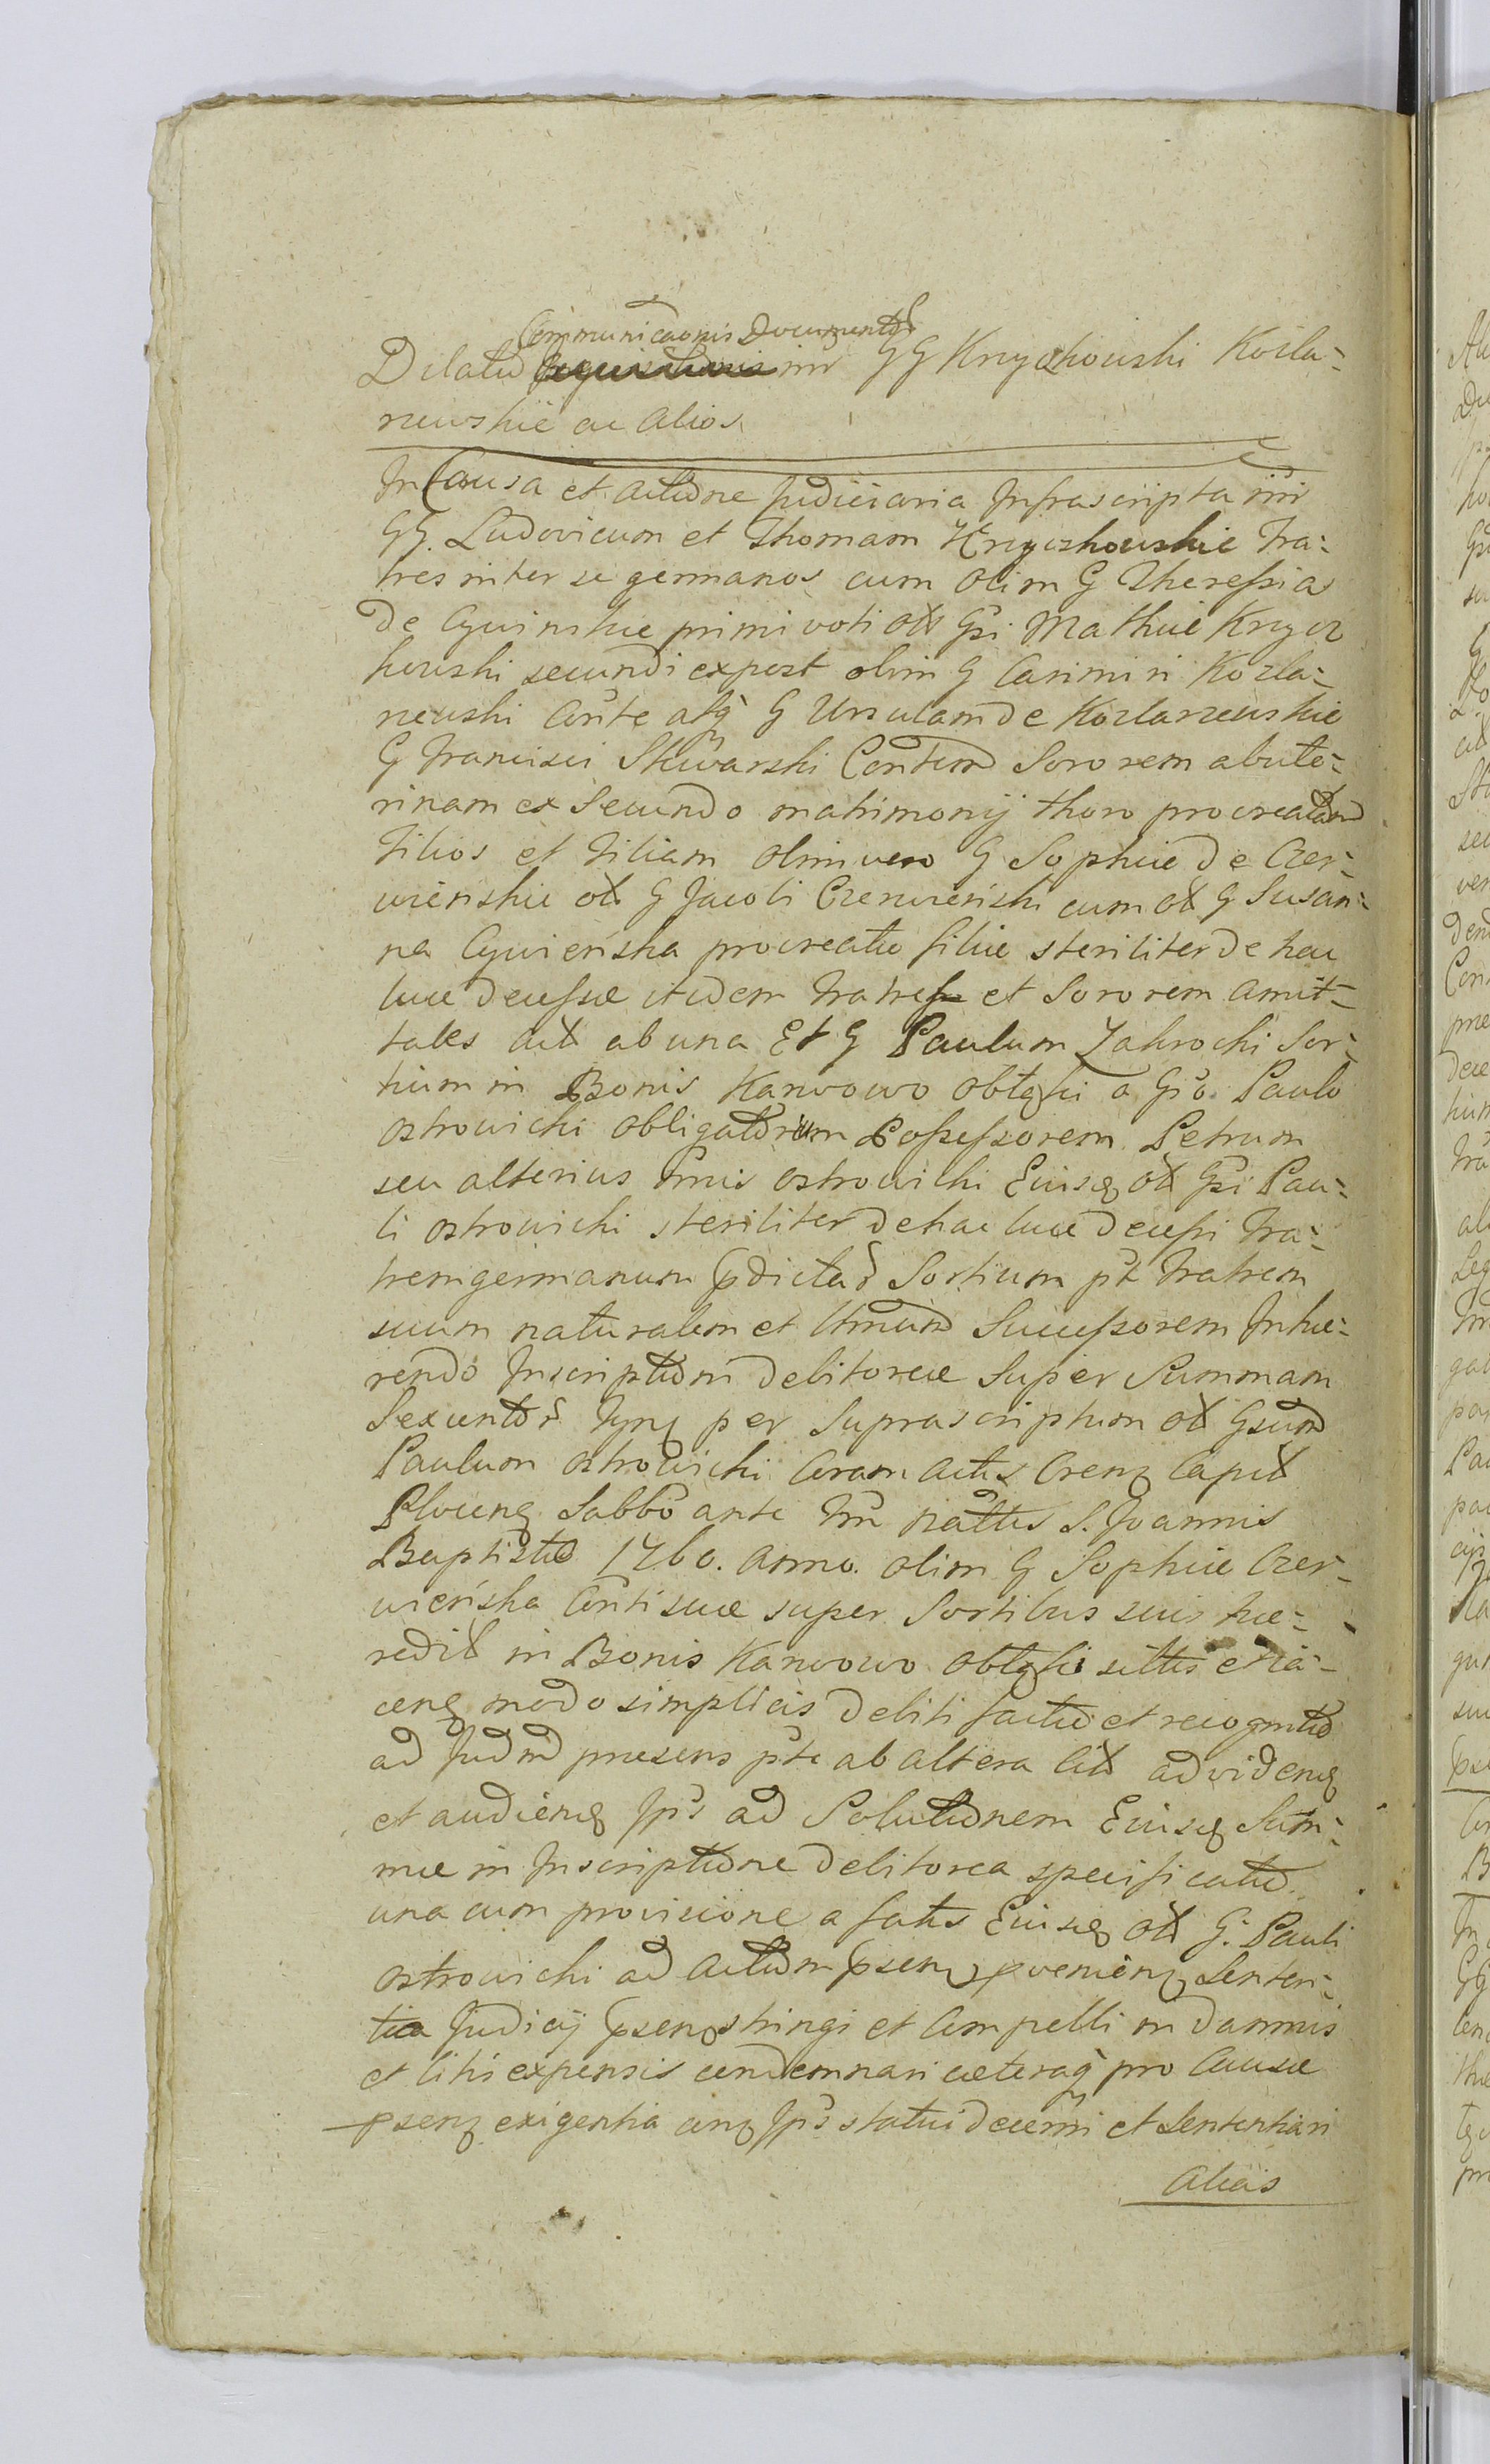 Communicaonis Documentor
Dilatio inr GG Kryczkowski Kozla-
newskie ac Alios
In Causa et Actione Judiciaria Infrascripta inr
GG. Ludovicum et Thomam Kryczkowskie Fra-
tres inter se germanos cum olim G Theressia
de Cywinskie primi voti olt Gsi Mathiæ Krycz
kowski secundi expost olim G Casimiri Kozla-
newski Conte atq G Ursulam de Kozlanewskie
G Francisci Skwarski Contem Sororem abute-
rinam ex Secundo matrimonij thoro procreatam
Filios et Filiam olim vero G Sophiæ de Czer-
wienskie olt G Jacobi Czerwienski cum olt G Susan-
na Cywieńska procreatæ filiæ steriliter de hac
luce decessæ itidem Fratres et Sororem Amit-
tales Act ab una Et G Paulum Zakrocki Sor-
tium in Bonis Karwowo Obtgki a Gso Paulo
Ostrowicki Obligatorium Possessorem Petrum
seu alterius nnis Ostrowicki Eiusq olt Gsi Pau-
li Ostrowicki steriliter de hac luce decessi Fra-
trem germanum pdictar Sortium pt Fratrem
suum naturalem et ltimum Successorem Inhæ-
rendo Inscriptioni debitoreæ Super Summam
Sexcentor Tynf per Suprascriptum olt Gsum
Paulum Ostrowicki Coram Actis Crenz Capit
Plocenq Sabbo ante Fm nattis S. Joannis
Baptistæ 1760. Anno. olim G Sophiæ Czer-
wieńska Conti suæ super Sortibus suis hæ-
redit in Bonis Karwowo Obtgki sittis et ia-
cenq modo simplicis debiti factæ et recognitæ
ad Judm præsens pte ab altera Cit ad videnq
et audienq Ips ad Solutionem Eiusq Sum-
mæ in Inscriptione debitorea specificatæ
una cum provisione a fatis Eiusq olt G. Pauli
Ostrowicki ad Actum psenq pvenienq Senten-
tia Judicij psenq stringi et Compelli in damnis
et litis expensis condemnari cæteraq pro Causæ
psenq exigentia cirq Ips statui decerni et Sententiari
Alias